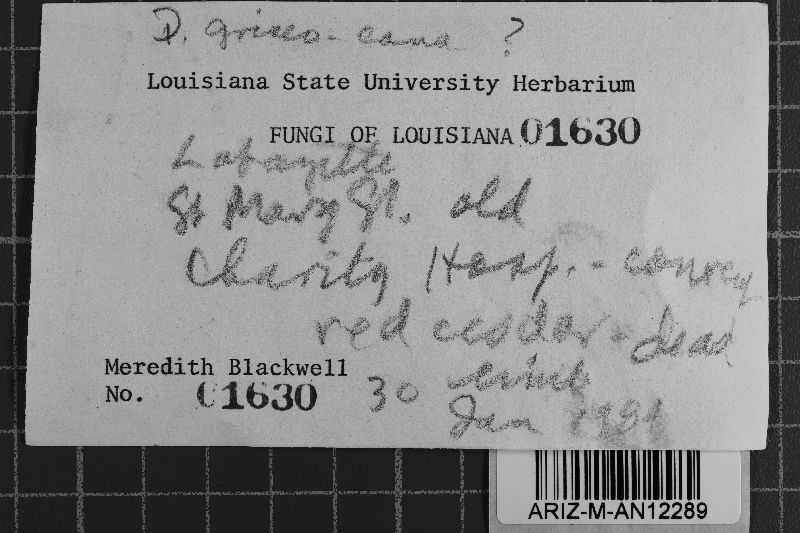 P. griseo-cana ?
Louisiana State University Herbarium
FUNGI OF LOUISIANA 01630
Lafayette
St Mary St. old
Charity Hosp. -
red cedar - dead
Meredith Blackwell
No. 01630
30
Jan
ARIZ-M-AN12289